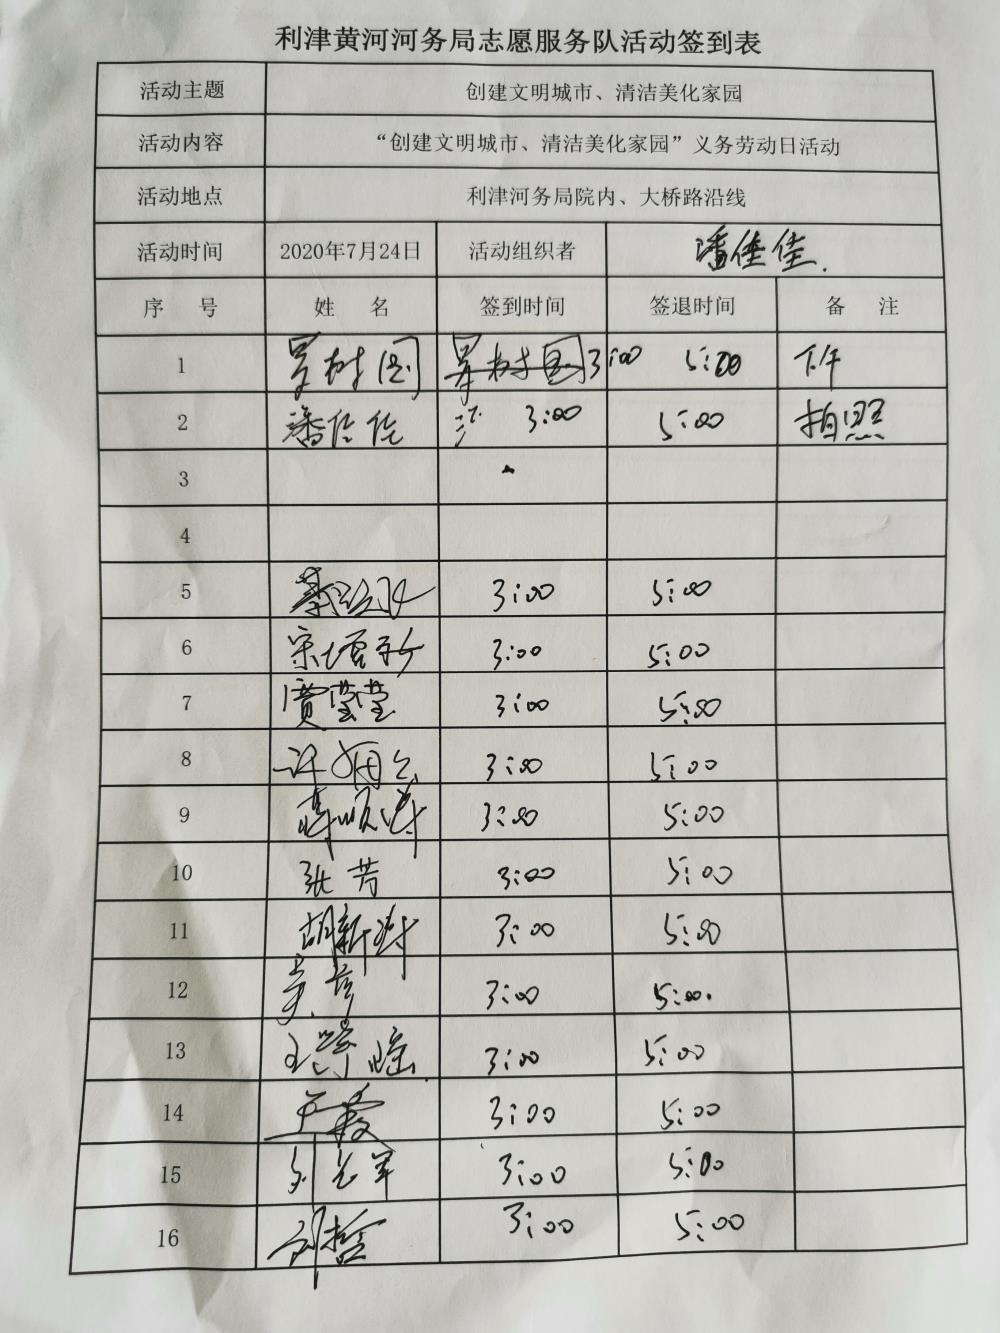 利津黄河河务局志愿服务队活动签到表
活动主题 创建文明城市、清洁美化家园
活动内容 “创建文明城市、清洁美化家园”义务劳动日活动
活动地点 利津河务局院内、大桥路沿线
活动时间 2020年7月24日 活动组织者 潘佳佳.
序 号 姓 名 签到时间 签退时间 备 注
1 3:00 5:00 下午
2 潘佳佳 3:00 5:00 拍照
3
4
5 3:00 5:00
6 3:00 5:00
7 賈莹莹 3:00 5:00
8 3:00 5:00
9 3:00 5:00
10 张芳 3:00 5:00
11 3:00 5:00
12 3:00 5:00.
13 3:00 5:00
14 3:00 5:00
15 3:00 5:00
16 3:00 5:00